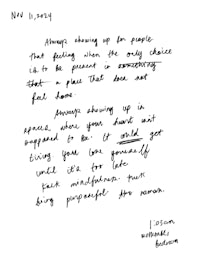 Nov 11, 2024
Always showing up for people
that feeling when the only choice
is to be present in something
that a place that does not
feel home.
Always showing up in
spaces where your heart isn't
supposed to be. It could get
tiring you lose yourself
until it's too late
mindfulness.
being purposeful